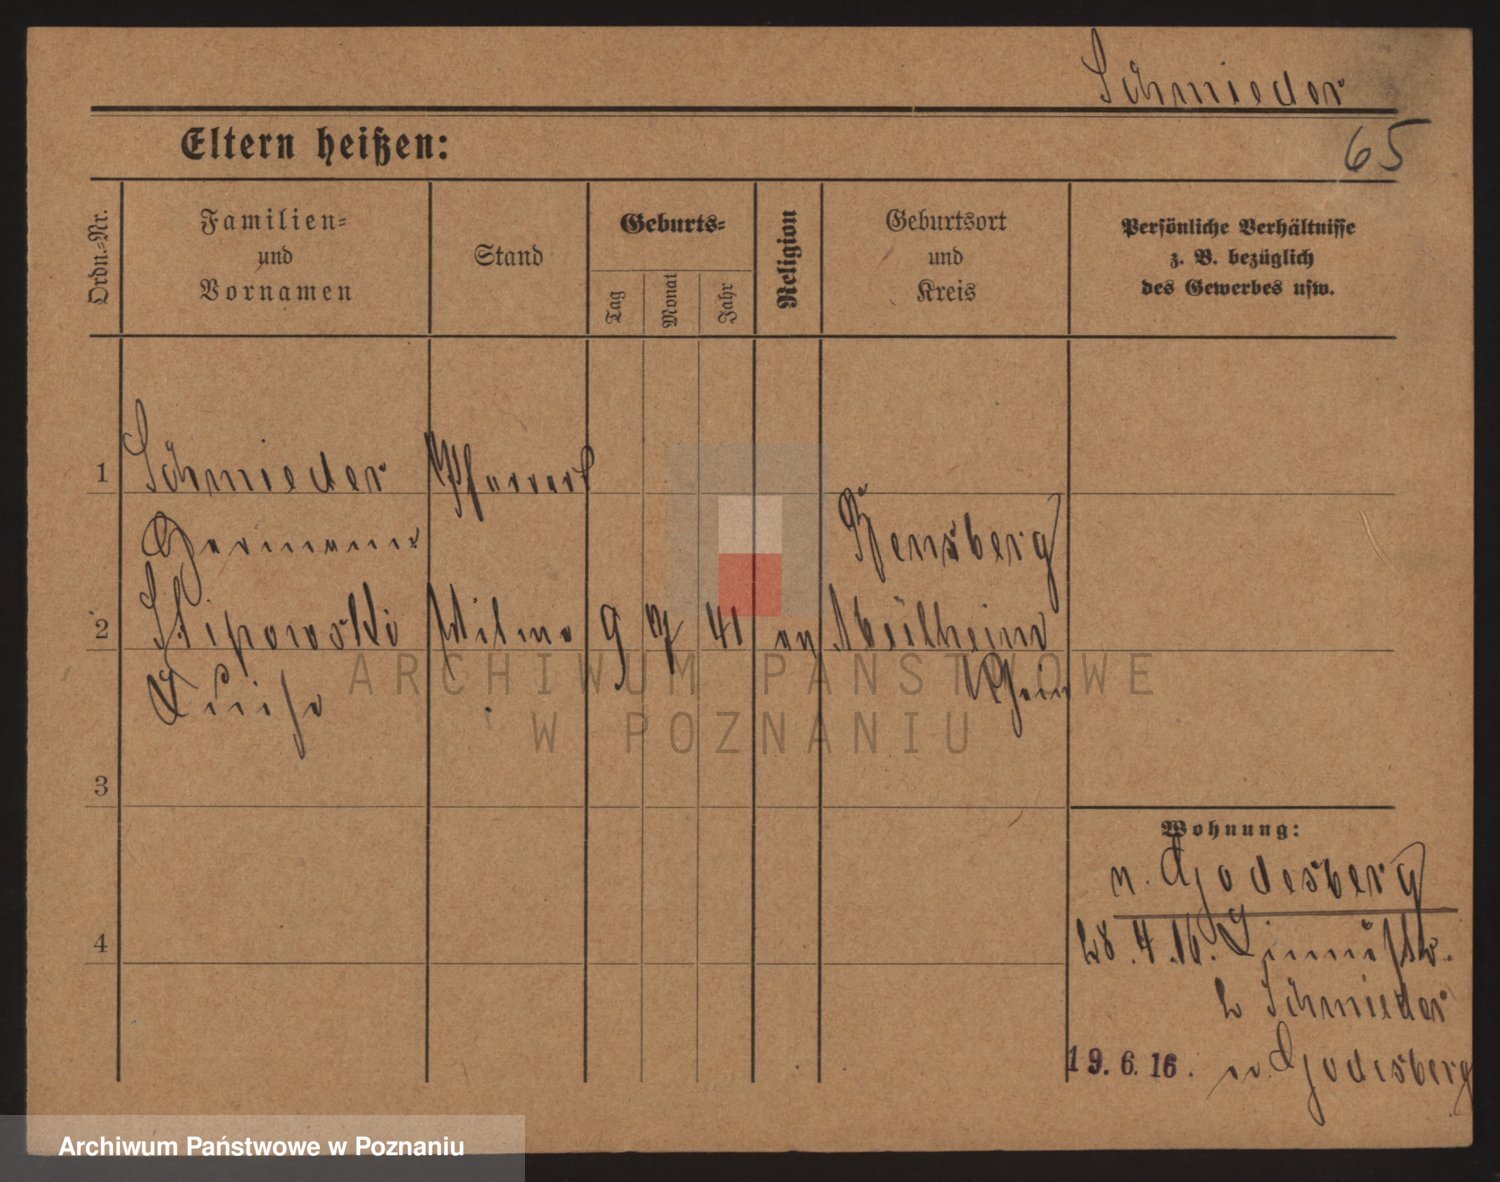 Schmieder
65
Eltern heißen:
Ordn.-Nr.
Familien-
und
Vornamen
Stand
Geburts-
Tag
Monat
Jahr
Religion
Geburtsort
und
Kreis
Persönliche Verhältnisse
z. B. bezüglich
des Gewerbes usw.
1
Schmieder
Hermann
2
Luise
9 41
Rhein
3
4
ARCHIWUM PAŃSTWOWE
W POZNANIU
Wohnung:
n. Godesberg
28.4.16.
b Schmieder
19.6.16. n. Godesberg
Archiwum Państwowe w Poznaniu